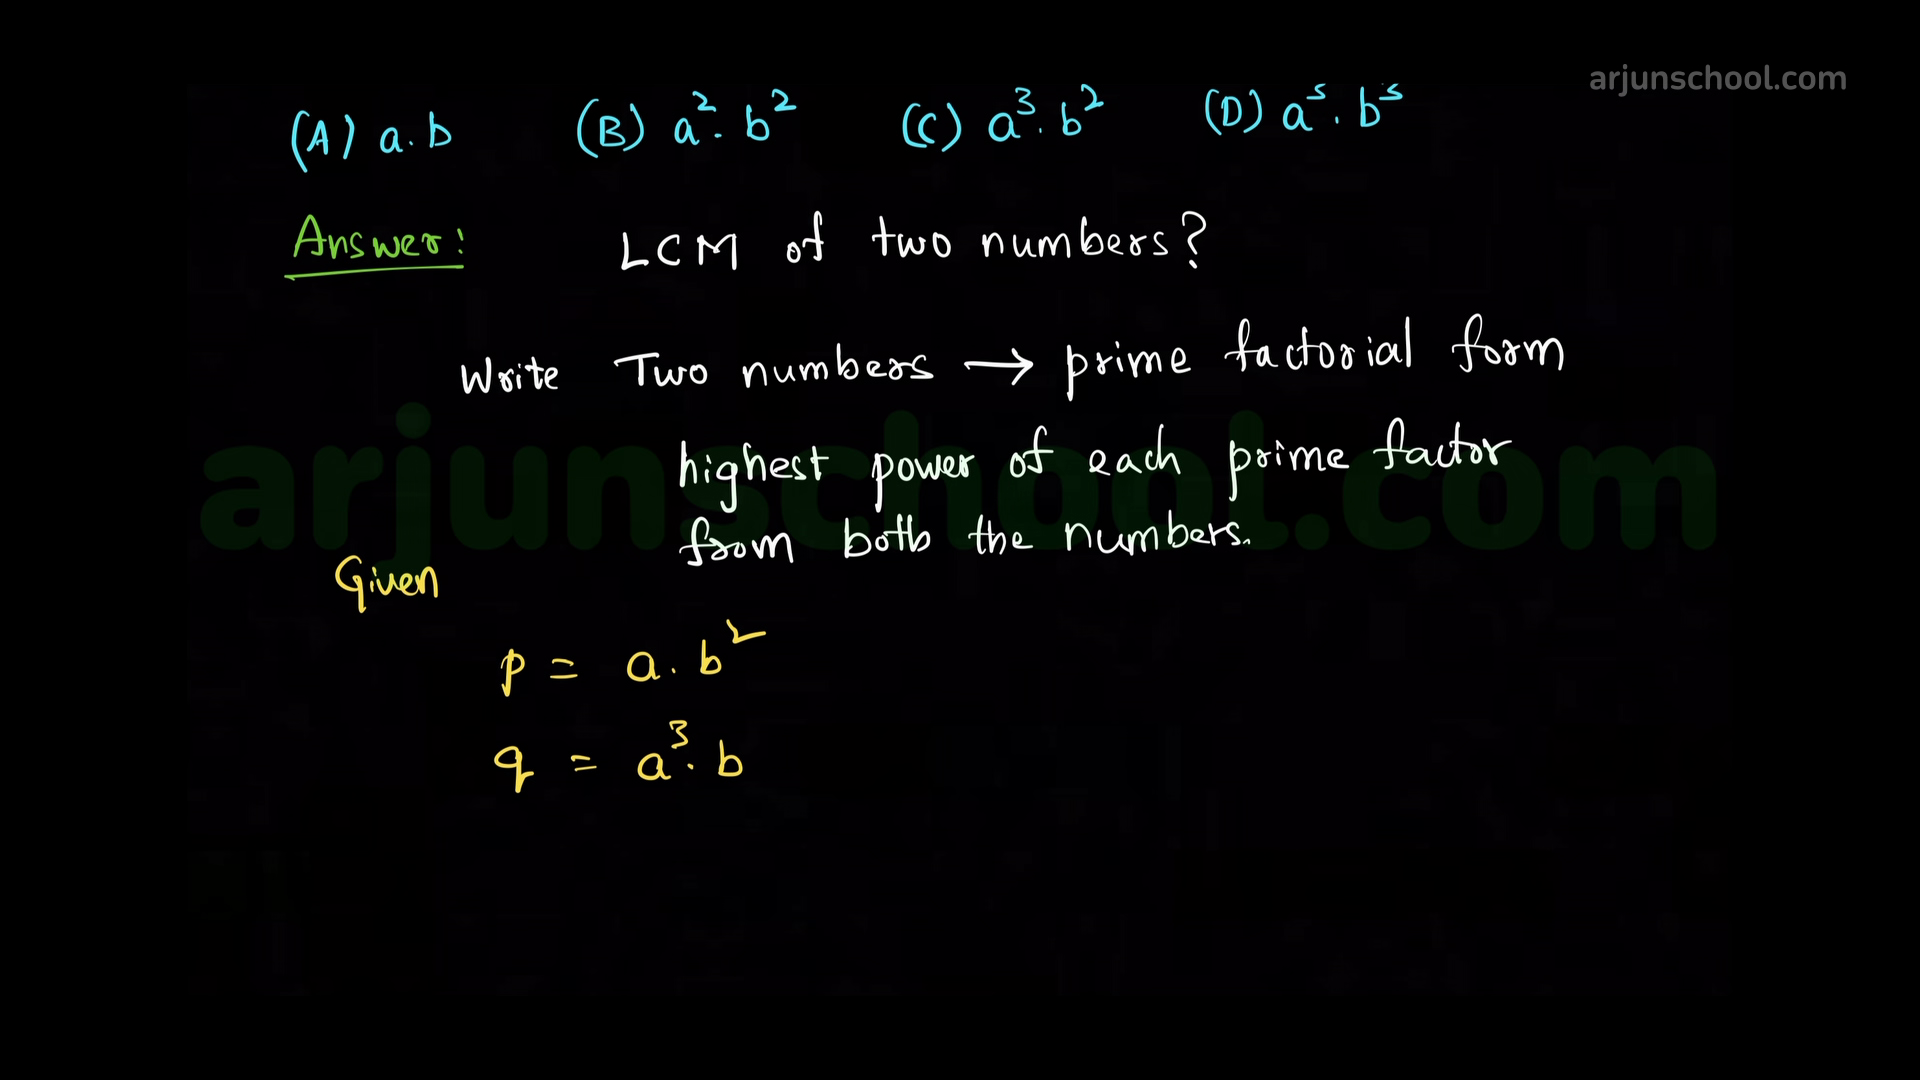 arjunschool.com
(A) a.b (B) a². b² (C) a³. b² (D) a⁵. b⁵
Answer: LCM of two numbers?
Write Two numbers → prime factorial form
highest power of each prime factor
from both the numbers.
arjunschool.com
Given
p = a. b²
q = a³. b